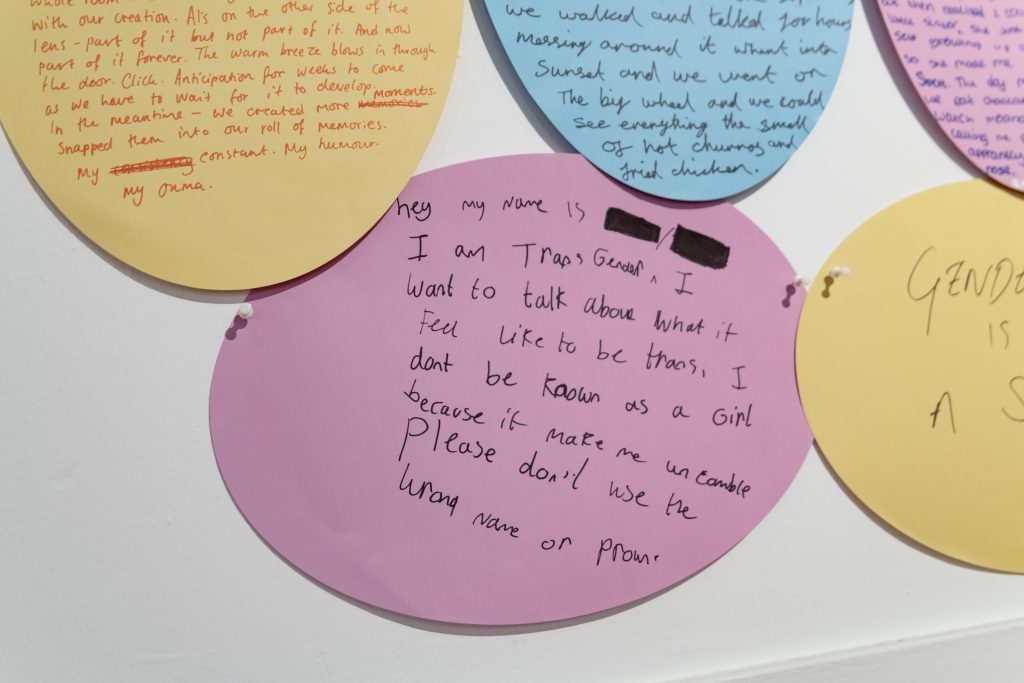 whole room
with our creation. Al's on the other side of the
lens - part of it but not part of it. And now
part of it forever. The warm breeze blows in through
the door. Click. Anticipation for weeks to come
as we have to wait for it to develop.
In the meantime - we created more memories moments.
Snapped them into our roll of memories.
My constant. My humour.
my ouma.
we walked and talked for hours
messing around it whent into
Sunset and we went on
The big wheel and we could
see everything the smell
of hot churros and
fried chicken.
so she made me
Soon. The day
we eat
watch
calling me
nose.
hey my name is /
I am Trans Gender, I
want to talk about what it
Feel Like to be trans, I
dont be known as a Girl
because it make me uncomble
Please don't use the
wrong name or pron.
GENDE
IS
A S